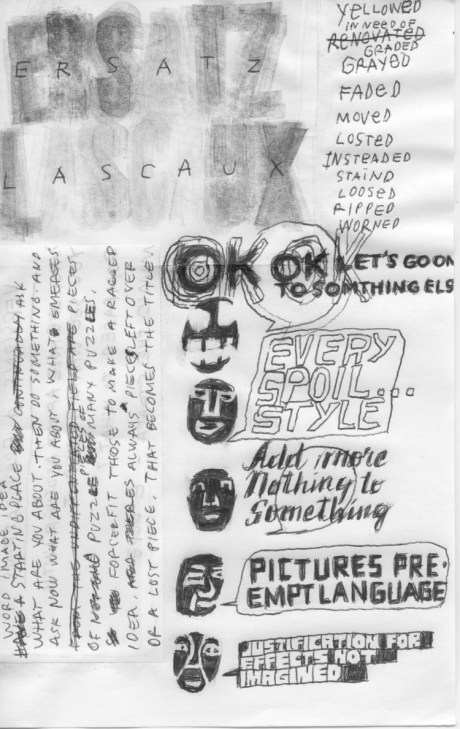 ERSATZ
LASCAUX
YELLOWED
IN NEED OF
RENOVATED
GRADED
GRAYED
FADED
MOVED
LOSTED
INSTEADED
STAIND
LOOSED
RIPPED
WORNED
OK OK LET'S GO ON
TO SOMTHING ELS
EVERY
SPOIL...
STYLE
Add more
Nothing to
Something
PICTURES PRE-
EMPT LANGUAGE
JUSTIFICATION FOR
EFFECTS NOT
IMAGINED
WORD IMAGE IDEA
HAVE A STARTING PLACE AND CONTINUALLY ASK
WHAT ARE YOU ABOUT. THEN DO SOMETHING AND
ASK NOW WHAT ARE YOU ABOUT. WHAT EMERGES
PIECES
PIECE OF
OF PUZZLE MANY PUZZLES.
FORCE FIT THOSE TO MAKE A RAGGED
IDEA, THERES ALWAYS A PIECE LEFT OVER
OR A LOST PIECE, THAT BECOMES THE TITLE.